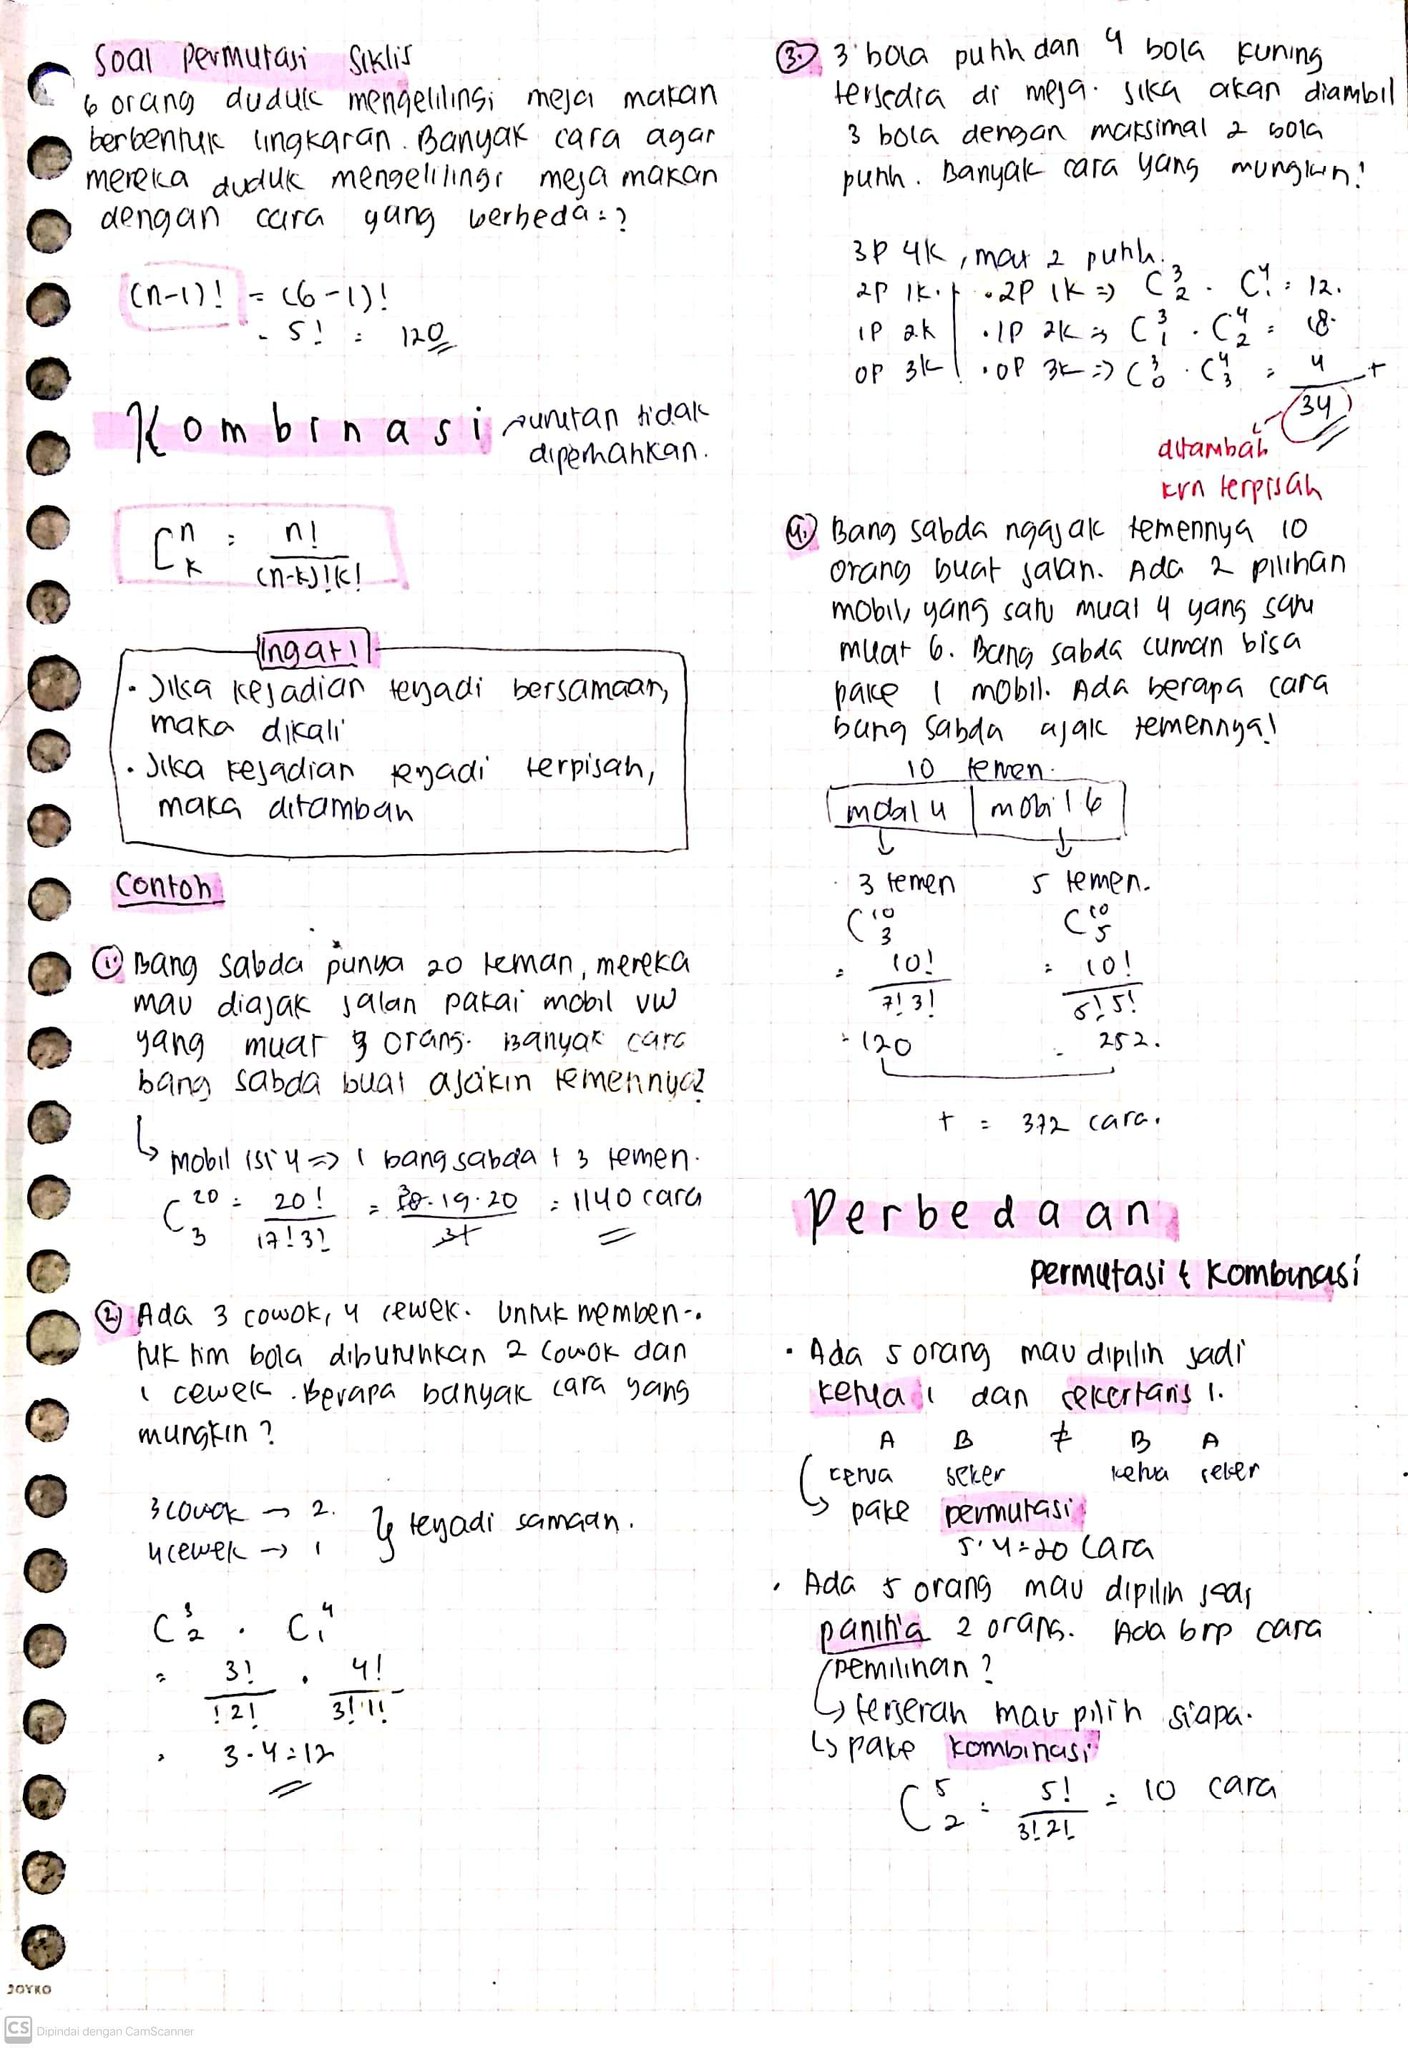 Soal Permutasi Siklis
6 orang duduk mengelilingi meja makan
berbentuk lingkaran. Banyak cara agar
mereka duduk mengelilingi meja makan
dengan cara yang berbeda = ?
(n-1)! = (6-1)!
= 5! = 120
Kombinasi → urutan tidak
diperhatikan.
C n k = n! / (n-k)! k!
Ingat!
• Jika kejadian terjadi bersamaan,
maka dikali
• Jika kejadian terjadi terpisah,
maka ditambah
Contoh
1. Bang Sabda punya 20 teman, mereka
mau diajak jalan pakai mobil VW
yang muat orang. Banyak cara
bang sabda buat ajakin temennya?
↳ mobil isi 4 => 1 bang sabda + 3 temen.
C 20 3 = 20! / 17! 3! = 18·19·20 / 3! = 1140 cara
2. Ada 3 cowok, 4 cewek. Untuk memben-
tuk tim bola dibutuhkan 2 cowok dan
1 cewek. Berapa banyak cara yang
mungkin?
3 cowok → 2.
4 cewek → 1
} terjadi samaan.
C 3 2 · C 4 1
= 3! / 1 2! · 4! / 3! 1!
= 3·4 = 12
3. 3 bola putih dan 4 bola kuning
tersedia di meja. Jika akan diambil
3 bola dengan maksimal 2 bola
putih. Banyak cara yang mungkin!
3P 4K, max 2 putih.
2P 1K. • 2P 1K => C 3 2 · C 4 1 = 12.
1P 2K • 1P 2K => C 3 1 · C 4 2 = 18.
0P 3K • 0P 3K => C 3 0 · C 4 3 = 4 +
34
ditambah
krn terpisah
4. Bang sabda ngajak temennya 10
orang buat jalan. Ada 2 pilihan
mobil, yang satu muat 4 yang satu
muat 6. Bang sabda cuman bisa
pake 1 mobil. Ada berapa cara
bang sabda ajak temennya!
10 temen.
mobil 4 | mobil 6
3 temen 5 temen.
C 10 3 C 10 5
= 10! / 7! 3! = 10! / 5! 5!
= 120 = 252.
+ = 372 cara.
Perbedaan
permutasi & kombinasi
• Ada 5 orang mau dipilih jadi
ketua 1 dan sekertaris 1.
A B ≠ B A
ketua seker ketua seker
↳ pake permutasi
5·4=20 cara
• Ada 5 orang mau dipilih jadi
panitia 2 orang. Ada brp cara
pemilihan?
↳ terserah mau pilih siapa.
↳ pake kombinasi
C 5 2 = 5! / 3! 2! = 10 cara
JOYKO
CS Dipindai dengan CamScanner